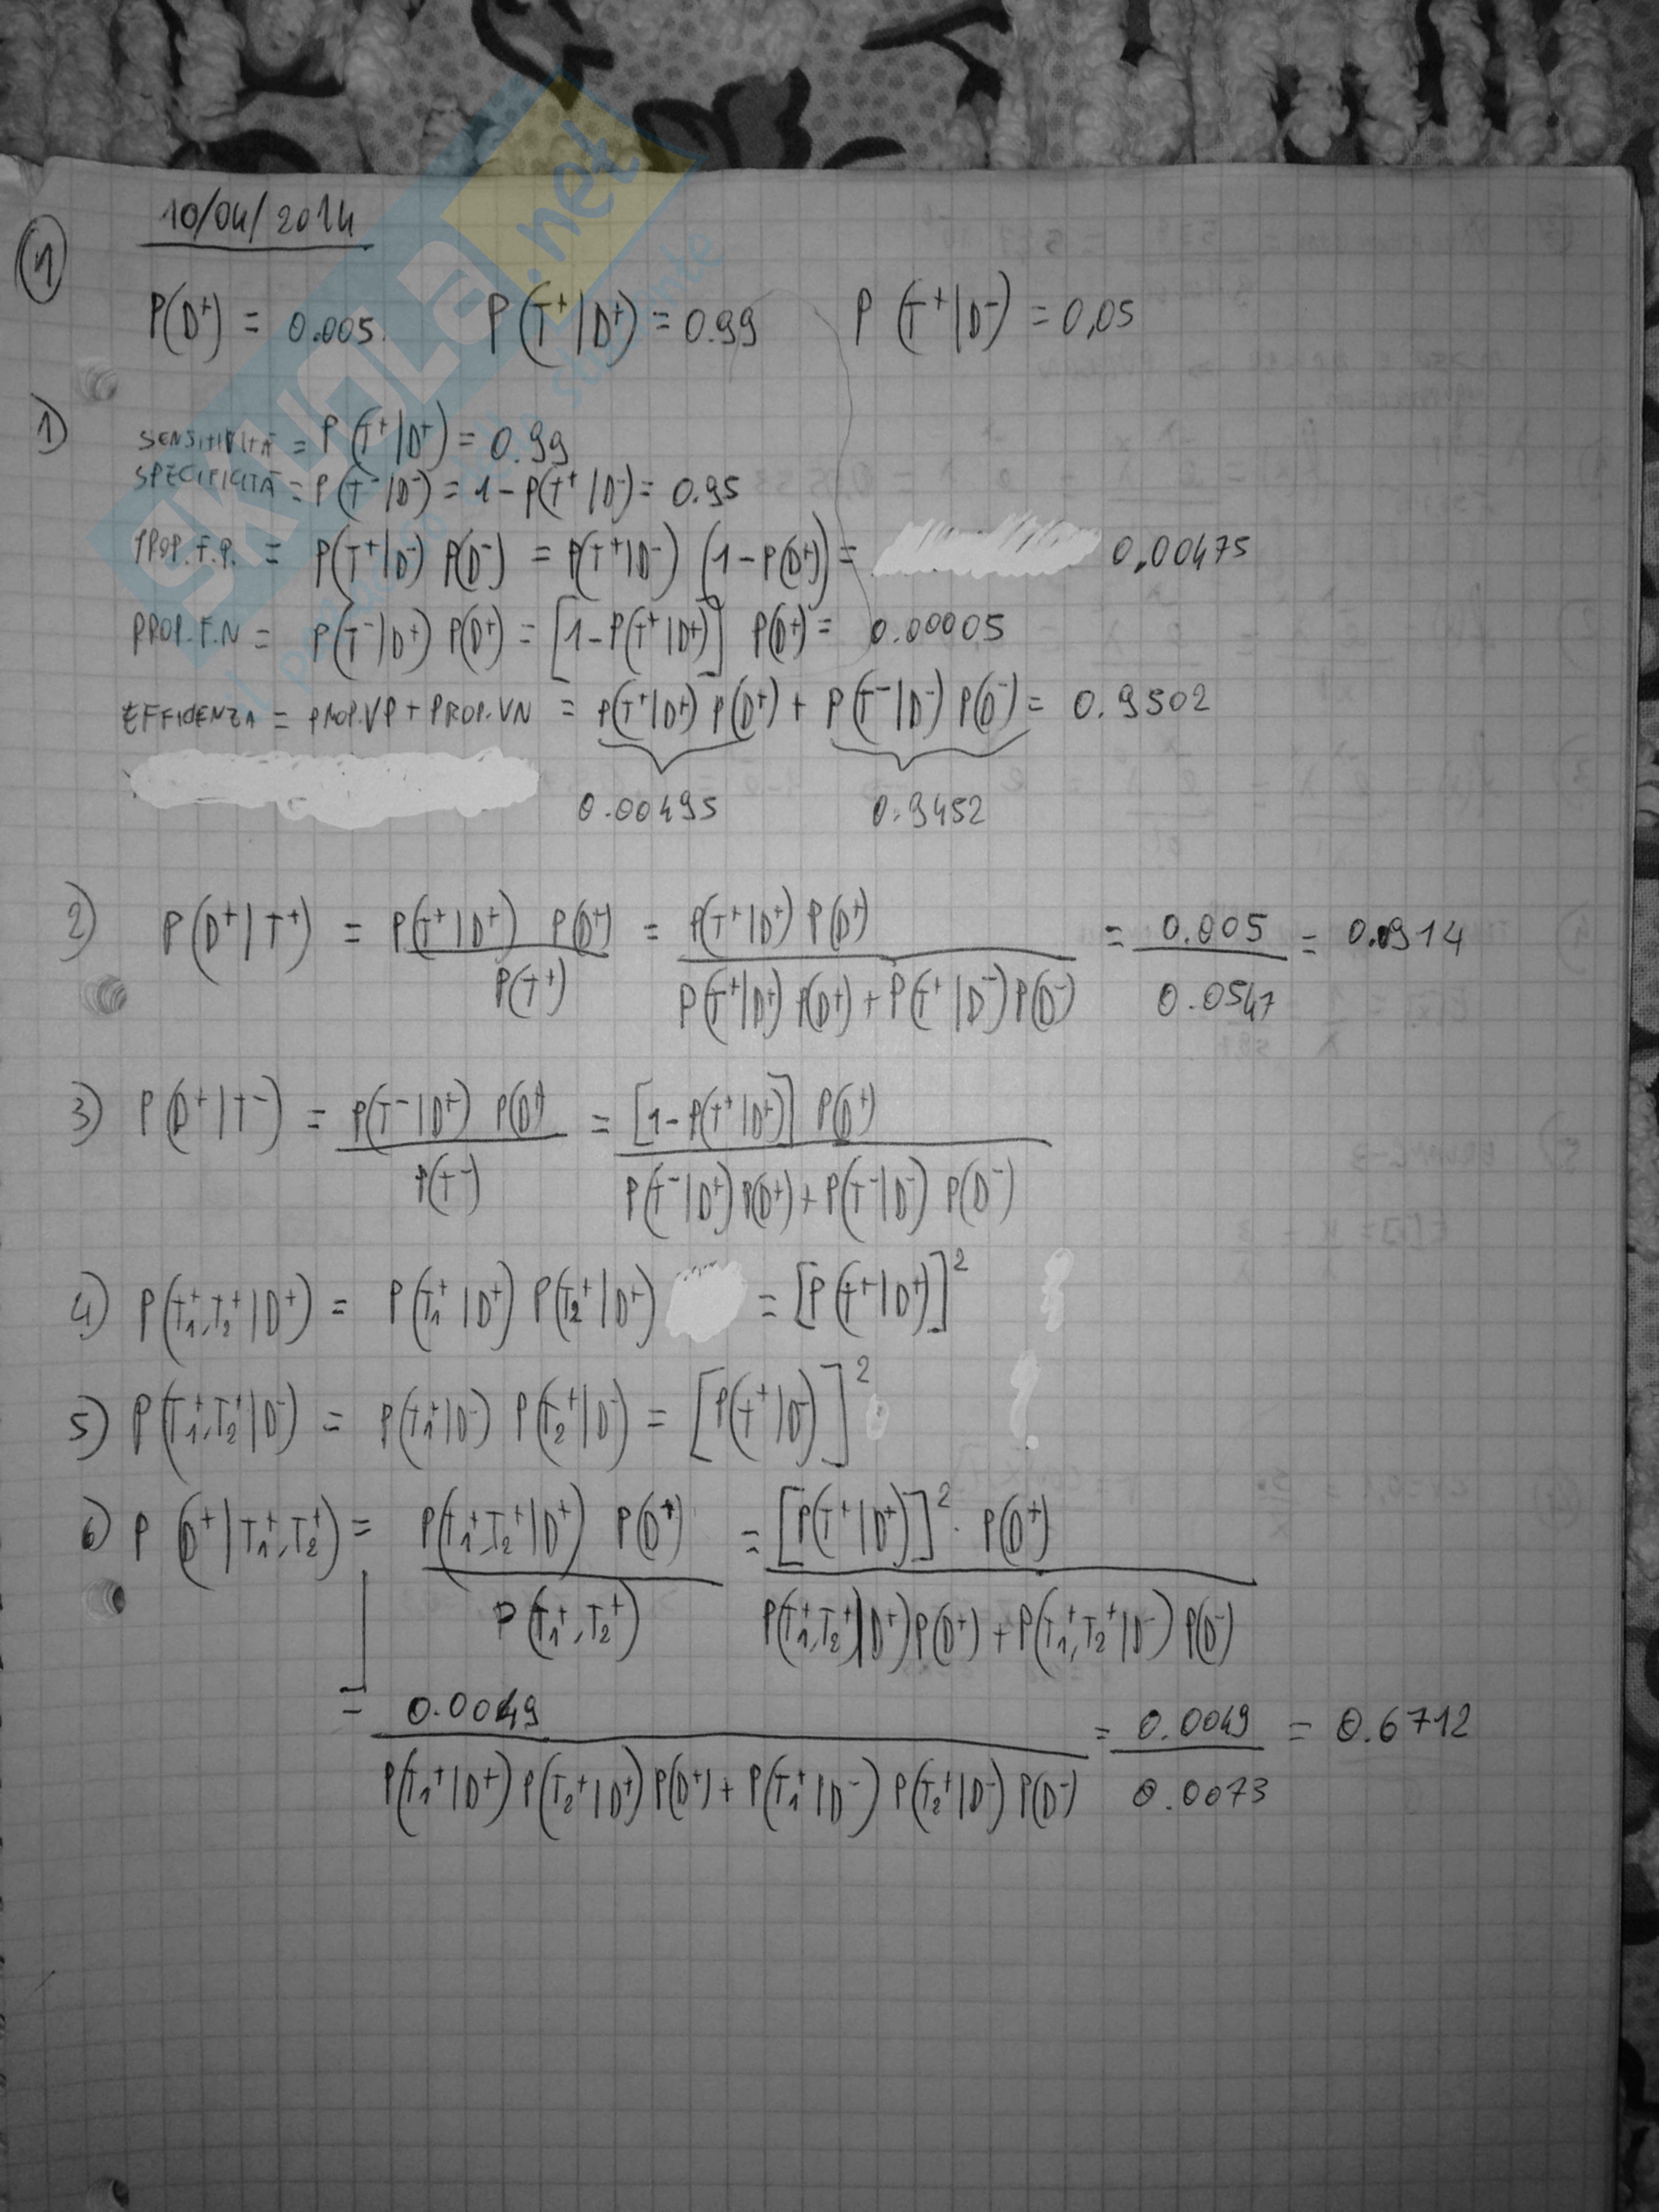 10/04/2014
1
P(D⁺) = 0.005 P(T⁺|D⁺) = 0.99 P(T⁺|D⁻) = 0,05
1) SENSITIVITÀ = P(T⁺|D⁺) = 0.99
SPECIFICITÀ = P(T⁻|D⁻) = 1 - P(T⁺|D⁻) = 0.95
PROP.F.P. = P(T⁺|D⁻) P(D⁻) = P(T⁺|D⁻) (1 - P(D⁺)) = 0,00475
PROP.F.N = P(T⁻|D⁺) P(D⁺) = [1 - P(T⁺|D⁺)] P(D⁺) = 0.00005
EFFICIENZA = PROP.VP + PROP.VN = P(T⁺|D⁺) P(D⁺) + P(T⁻|D⁻) P(D⁻) = 0.9502
0.00495 0.9452
2) P(D⁺|T⁺) = P(T⁺|D⁺) P(D⁺) = P(T⁺|D⁺) P(D⁺) = 0.005 = 0.0914
P(T⁺) P(T⁺|D⁺) P(D⁺) + P(T⁺|D⁻) P(D⁻) 0.0547
3) P(D⁺|T⁻) = P(T⁻|D⁺) P(D⁺) = [1 - P(T⁺|D⁺)] P(D⁺)
P(T⁻) P(T⁻|D⁺) P(D⁺) + P(T⁻|D⁻) P(D⁻)
4) P(T₁⁺,T₂⁺|D⁺) = P(T₁⁺|D⁺) P(T₂⁺|D⁺) = [P(T⁺|D⁺)]²
5) P(T₁⁺,T₂⁺|D⁻) = P(T₁⁺|D⁻) P(T₂⁺|D⁻) = [P(T⁺|D⁻)]²
6) P(D⁺|T₁⁺,T₂⁺) = P(T₁⁺,T₂⁺|D⁺) P(D⁺) = [P(T⁺|D⁺)]² · P(D⁺)
P(T₁⁺,T₂⁺) P(T₁⁺,T₂⁺|D⁺) P(D⁺) + P(T₁⁺,T₂⁺|D⁻) P(D⁻)
= 0.0049 = 0.0049 = 0.6712
P(T₁⁺|D⁺) P(T₂⁺|D⁺) P(D⁺) + P(T₁⁺|D⁻) P(T₂⁺|D⁻) P(D⁻) 0.0073
SKUOLa.net